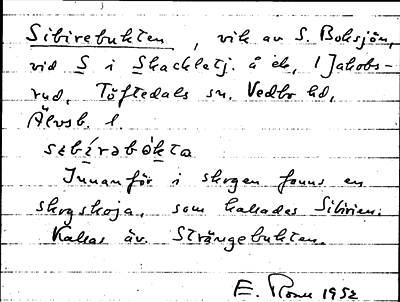 Sibirebukten, vik av S. Boksjön,
vid S i Skackletj. å ek, 1 Jakobs-
rud, Töftedals sn. Vedbo hd,
Älvsb. l.
sɪbírəbókta
Innanför i skogen fanns en
skogskoja, som kallades Sibirien.
Kallas äv. Strängebukten.
E. 1952